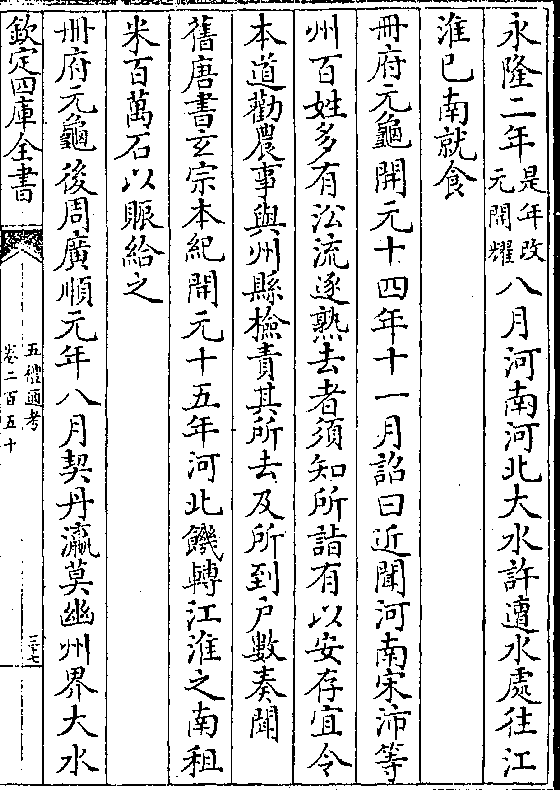 永隆二年是年改元開耀八月河南河北大水許遭水處往江
淮已南就食
冊府元龜開元十四年十一月詔曰近聞河南宋沛等
州百姓多有㳂流逐熟去者須知所詣有以安存宜令
本道勸農事與州縣檢責其所去及所到户數奏聞
舊唐書玄宗本紀開元十五年河北饑轉江淮之南租
米百萬石以賑給之
冊府元龜後周廣順元年八月契丹瀛莫幽州界大水
欽定四庫全書
五禮通考
卷二百五十
三十七